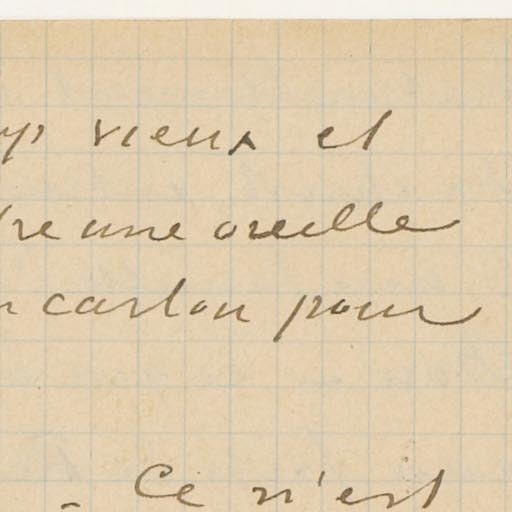 vieux et
une oreille
carton pour
- Ce n'est